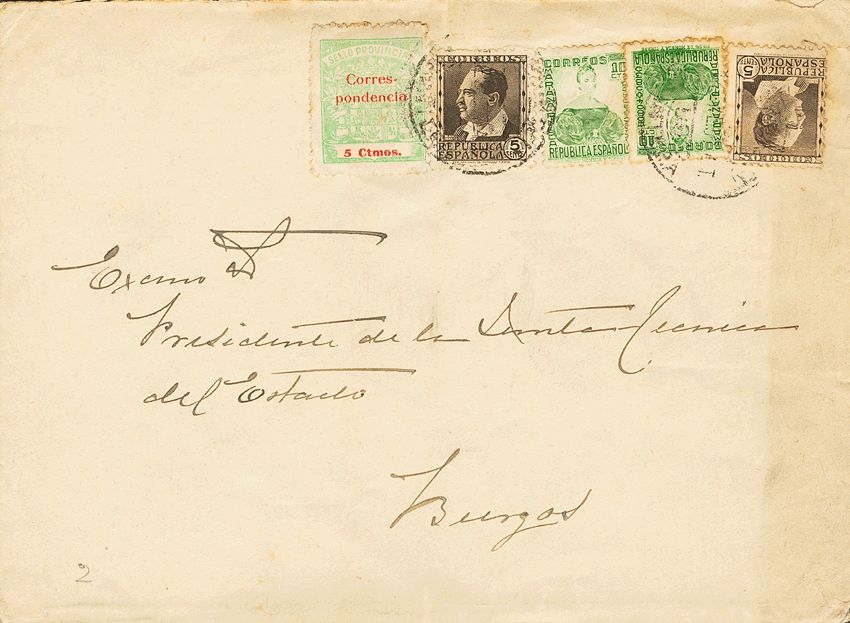 SELLO PROVINCIAL
Corres-
pondencia
5 Ctmos.
CORREOS
REPUBLICA
ESPAÑOLA 5 CENTS
CORREOS 10
REPUBLICA ESPAÑOLA
CORREOS 10
REPUBLICA ESPAÑOLA
CORREOS
REPUBLICA
ESPAÑOLA 5 CENTS
Excmo S
Presidente de la Junta Tecnica
del Estado
Burgos
2